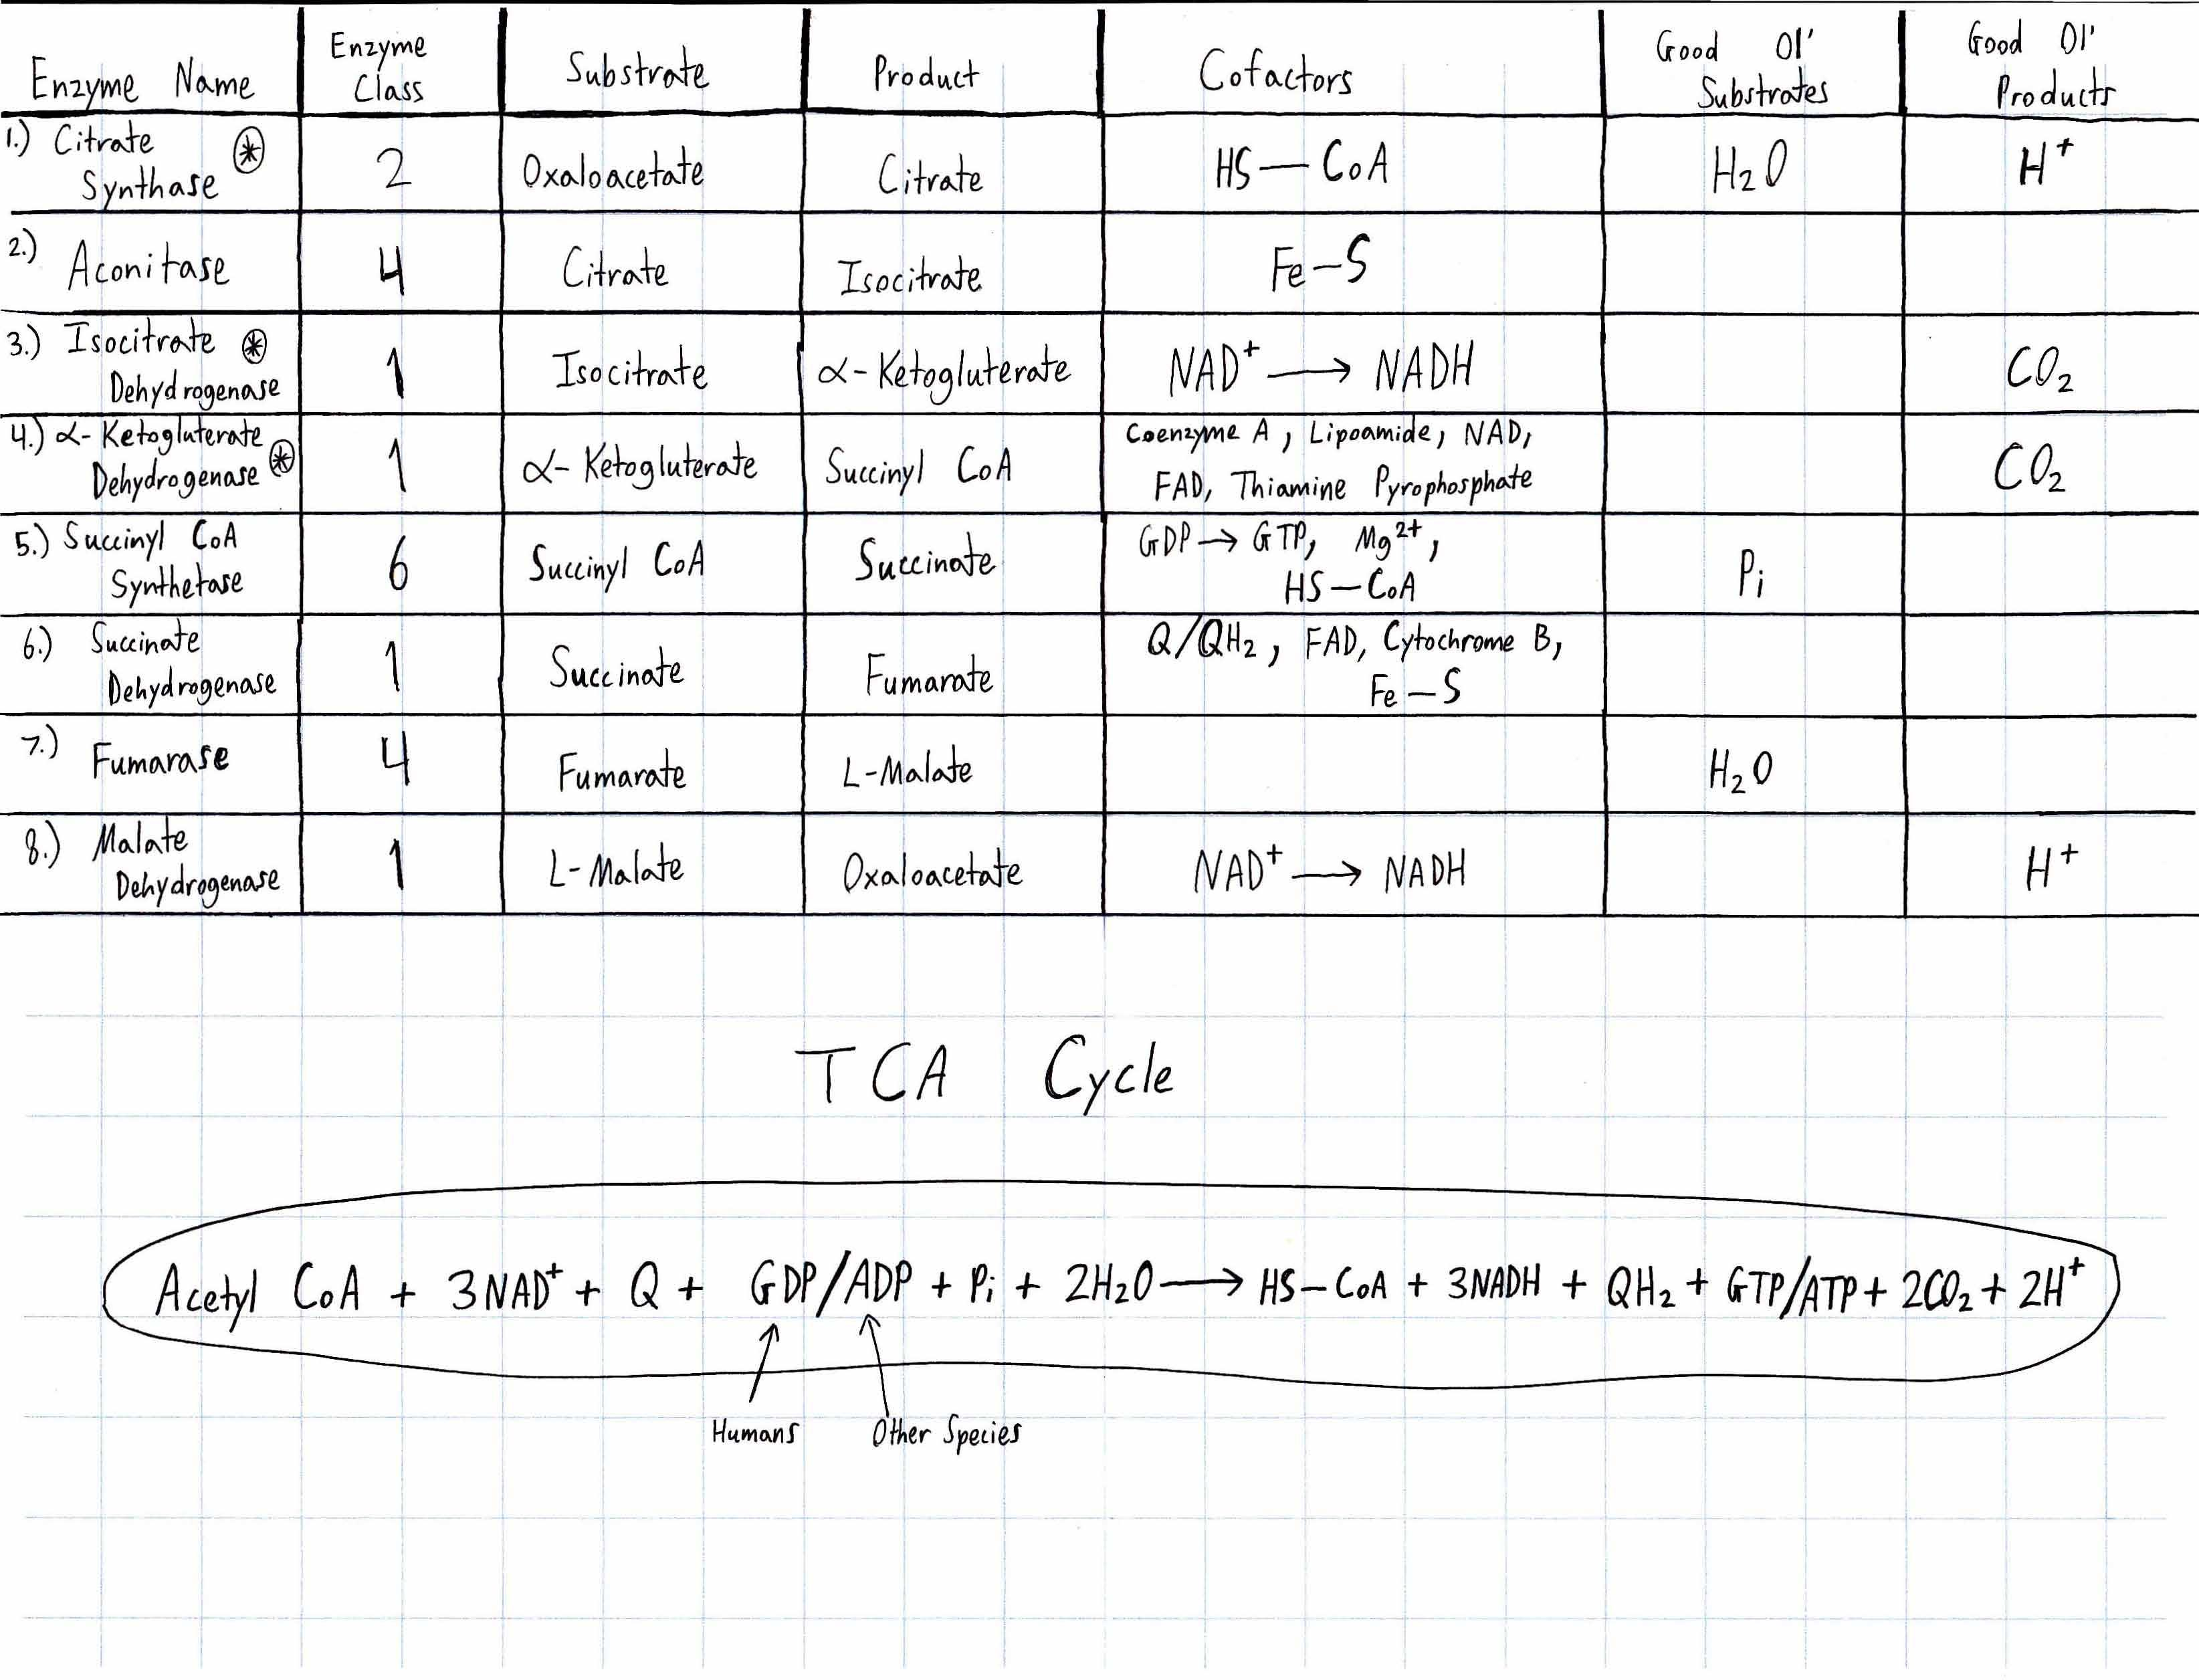 Enzyme Name
Enzyme
Class
Substrate
Product
Cofactors
Good Ol'
Substrates
Good Ol'
Products
1.) Citrate ⊛
Synthase
2
Oxaloacetate
Citrate
HS — CoA
H₂O
H⁺
2.) Aconitase
4
Citrate
Isocitrate
Fe–S
3.) Isocitrate ⊛
Dehydrogenase
1
Isocitrate
α-Ketogluterate
NAD⁺ → NADH
CO₂
4.) α-Ketogluterate
Dehydrogenase ⊛
1
α-Ketogluterate
Succinyl CoA
Coenzyme A, Lipoamide, NAD,
FAD, Thiamine Pyrophosphate
CO₂
5.) Succinyl CoA
Synthetase
6
Succinyl CoA
Succinate
GDP → GTP, Mg²⁺,
HS — CoA
Pi
6.) Succinate
Dehydrogenase
1
Succinate
Fumarate
Q/QH₂, FAD, Cytochrome B,
Fe — S
7.) Fumarase
4
Fumarate
L-Malate
H₂O
8.) Malate
Dehydrogenase
1
L-Malate
Oxaloacetate
NAD⁺ → NADH
H⁺
TCA Cycle
Acetyl CoA + 3NAD⁺ + Q + GDP/ADP + Pi + 2H₂O → HS–CoA + 3NADH + QH₂ + GTP/ATP + 2CO₂ + 2H⁺
Humans
Other Species